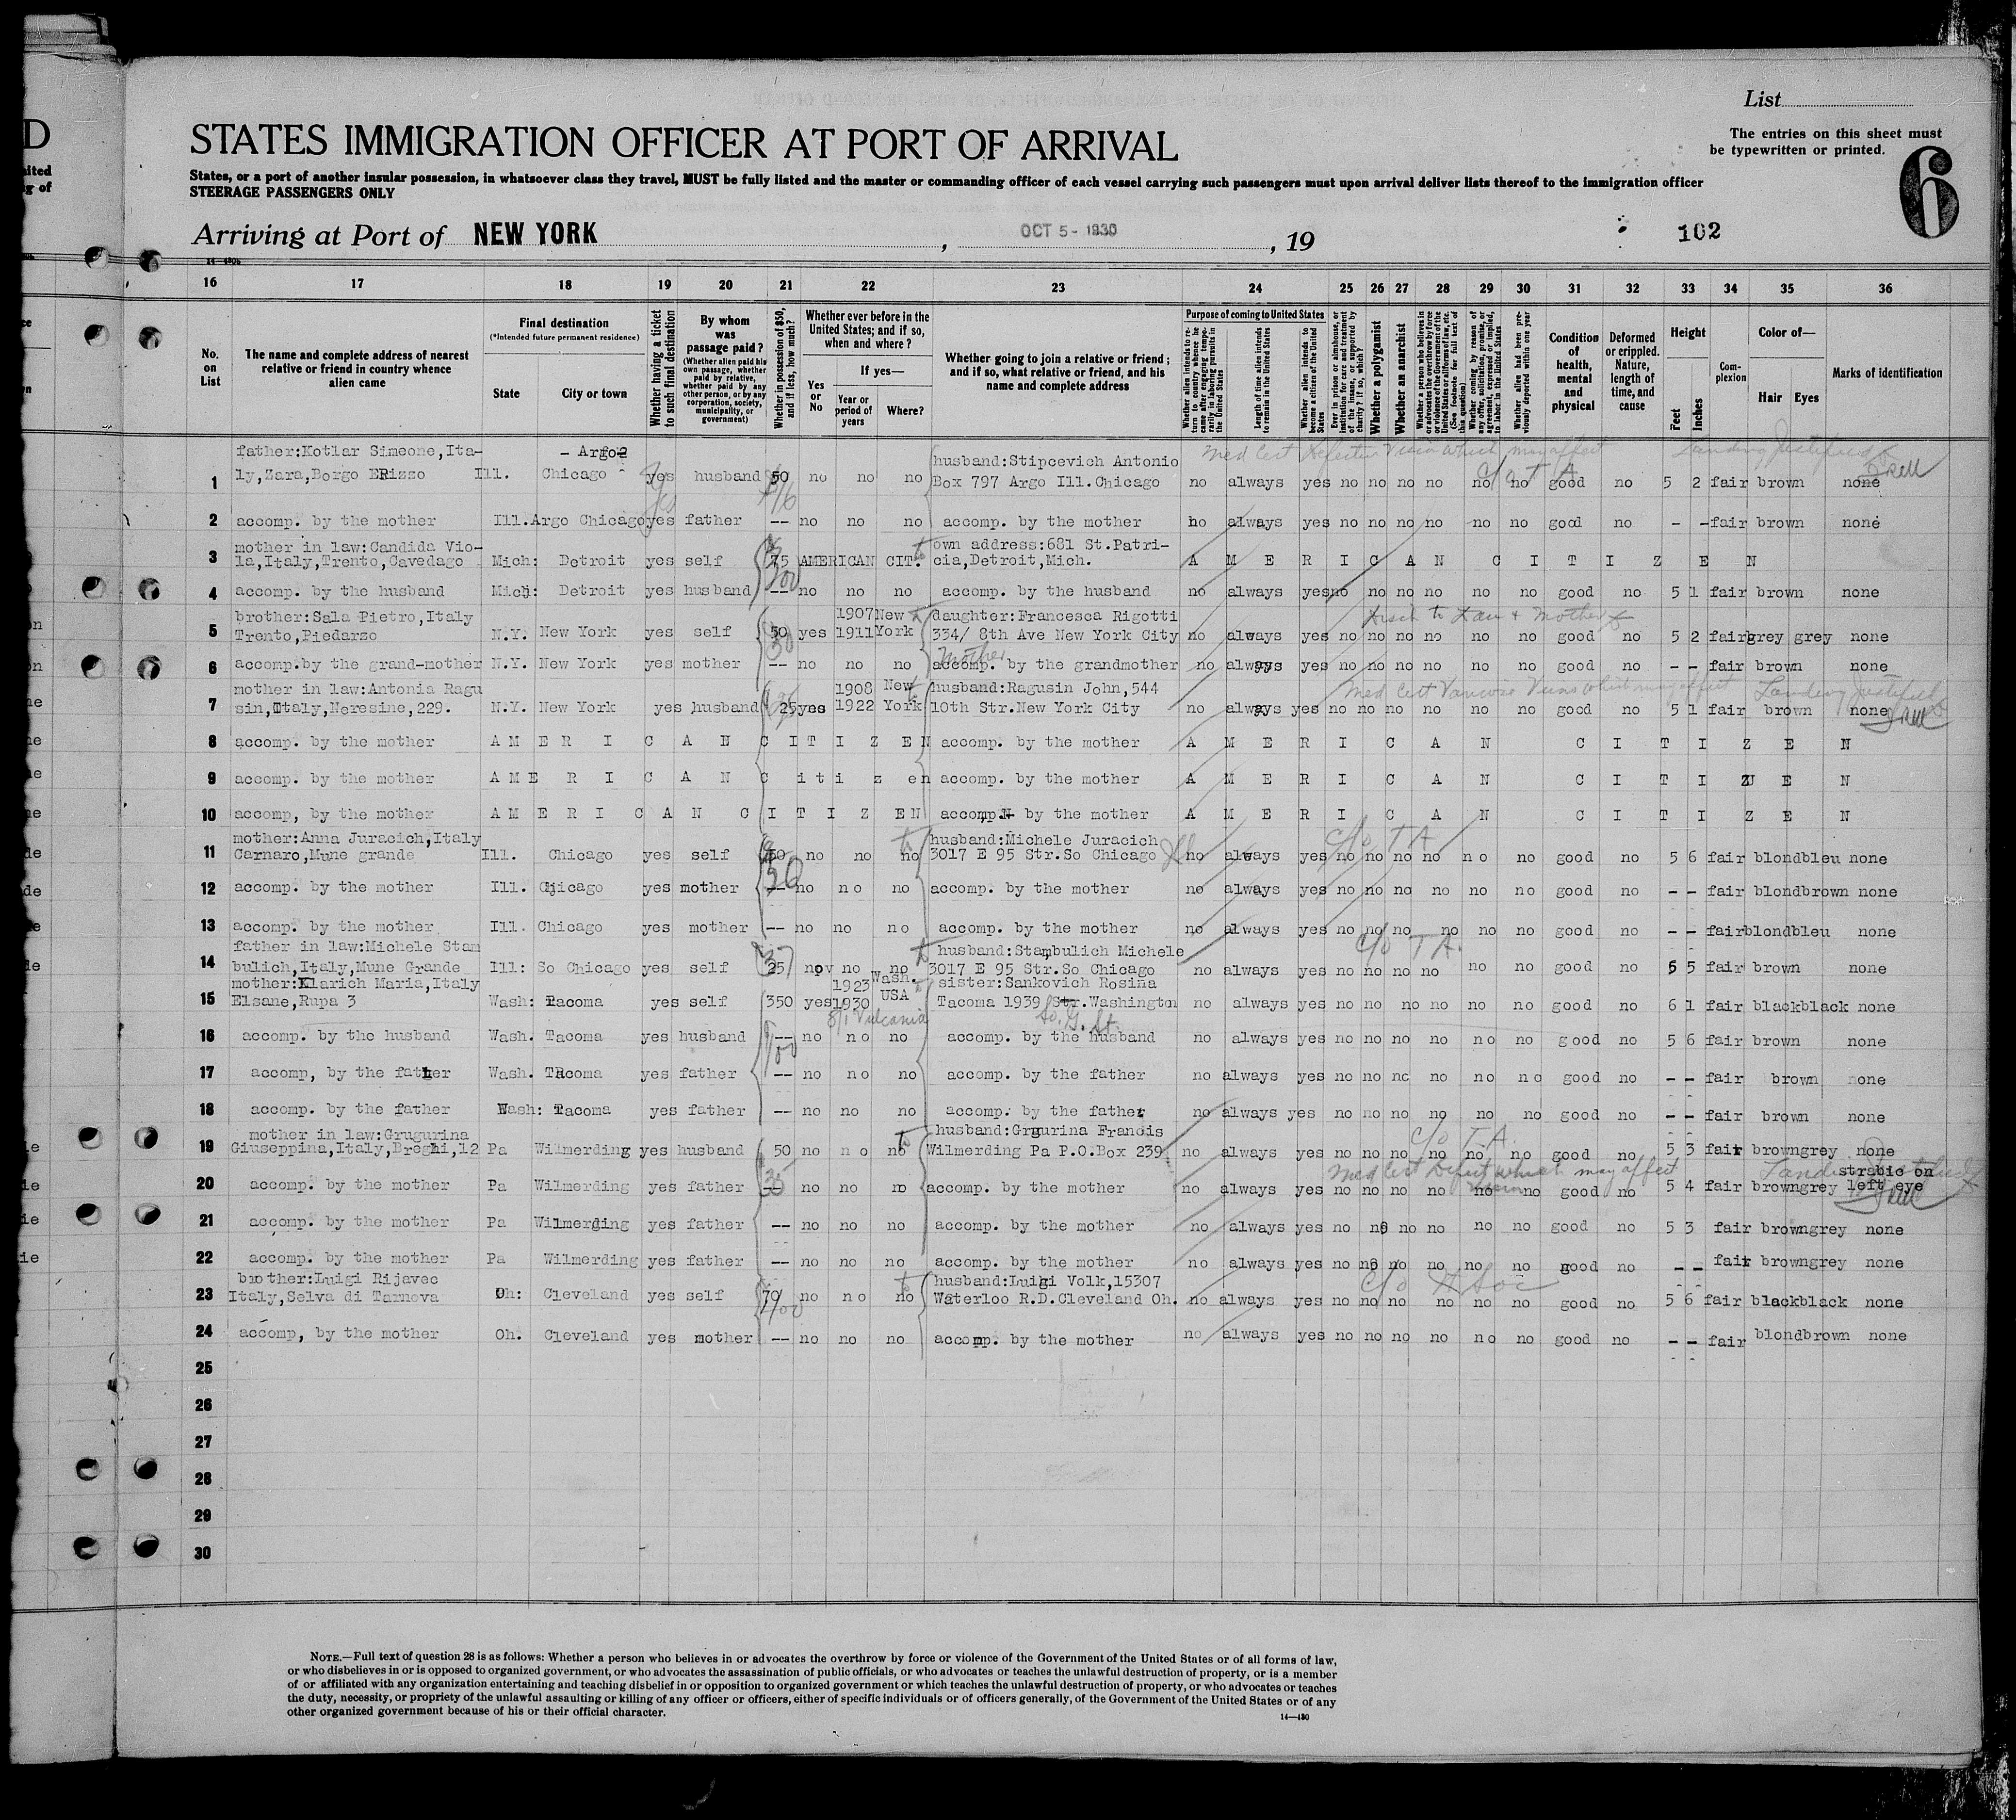 List
STATES IMMIGRATION OFFICER AT PORT OF ARRIVAL
The entries on this sheet must
be typewritten or printed.
6
States, or a port of another insular possession, in whatsoever class they travel, MUST be fully listed and the master or commanding officer of each vessel carrying such passengers must upon arrival deliver lists thereof to the immigration officer
STEERAGE PASSENGERS ONLY
Arriving at Port of NEW YORK , OCT 5 - 1930 , 19 102
16 17 18 19 20 21 22 23 24 25 26 27 28 29 30 31 32 33 34 35 36
No. on List
The name and complete address of nearest relative or friend in country whence alien came
Final destination
(*Intended future permanent residence)
State City or town
Whether having a ticket to such final destination
By whom was passage paid?
(Whether alien paid his own passage, whether paid by relative, whether paid by any other person, or by any corporation, society, municipality, or government)
Whether in possession of $50, and if less, how much?
Whether ever before in the United States; and if so, when and where?
Yes or No
If yes—
Year or period of years Where?
Whether going to join a relative or friend; and if so, what relative or friend, and his name and complete address
Purpose of coming to United States
Length of time alien intends to remain in the United States
Whether alien intends to become a citizen of the United States
Whether a polygamist
Whether an anarchist
Condition of health, mental and physical
Deformed or crippled. Nature, length of time, and cause
Height
Feet Inches
Complexion
Color of—
Hair Eyes
Marks of identification
father:Kotlar Simeone,Ita- - Argo husband:Stipcevich Antonio Med Cert Defective Vision which may affect Landing Justified
1 ly,Zara,Borgo ERizzo Ill. Chicago yes husband 50 no no no Box 797 Argo Ill.Chicago no always yes no no no no no no good no 5 2 fair brown none
2 accomp. by the mother Ill.Argo Chicago yes father -- no no no accomp. by the mother no always yes no no no no no no good no - - fair brown none
mother in law:Candida Vio- own address:681 St.Patri-
3 la,Italy,Trento,Cavedago Mich: Detroit yes self 75 AMERICAN CIT. cia,Detroit,Mich. A M E R I C A N C I T I Z E N
4 accomp. by the husband Mich: Detroit yes husband -- no no no accomp. by the husband no always yes no no no no no no good no 5 1 fair brown none
brother:Sala Pietro,Italy 1907 New daughter:Francesca Rigotti
5 Trento,Piedarzo N.Y. New York yes self 50 yes 1911 York 334/ 8th Ave New York City no always yes no no no no no no good no 5 2 fair grey grey none
Mother
6 accomp.by the grand-mother N.Y. New York yes mother -- no no no accomp. by the grandmother no always yes no no no no no no good no - - fair brown none
mother in law:Antonia Ragu 1908 New husband:Ragusin John,544 Med Cert Varicose Veins which may affect Landing Justified
7 sin,Italy,Neresine,229. N.Y. New York yes husband 25 yes 1922 York 10th Str.New York City no always yes no no no no no no good no 5 1 fair brown none
8 accomp. by the mother A M E R I C A N C I T I Z E N accomp. by the mother A M E R I C A N C I T I Z E N
9 accomp. by the mother A M E R I C A N C i t i z en accomp. by the mother A M E R I C A N C I T I Z E N
10 accomp, by the mother A M E R I C A N C I T I Z EN accomp. by the mother A M E R I C A N C I T I Z E N
mother:Anna Juracich,Italy husband:Michele Juracich c/o T A
11 Carnaro,Mune grande Ill. Chicago yes self 50 no no no 3017 E 95 Str.So Chicago no always yes no no no no no no good no 5 6 fair blond bleu none
12 accomp. by the mother Ill. Chicago yes mother -- no no no accomp. by the mother no always yes no no no no no no good no - - fair blond brown none
13 accomp. by the mother Ill. Chicago yes mother -- no no no accomp. by the mother no always yes no no no no no no good no - - fair blond bleu none
father in law:Michele Stam husband:Stambulich Michele c/o T A.
14 bulich,Italy,Mune Grande Ill: So Chicago yes self 25 no no no 3017 E 95 Str.So Chicago no always yes no no no no no no good no 5 5 fair brown none
mother:Klarich Maria,Italy 1923 Wash. sister:Sankovich Rosina
15 Elsane,Rupa 3 Wash: Tacoma yes self 350 yes 1930 USA Tacoma 1939 Str.Washington no always yes no no no no no no good no 6 1 fair black black none
Vulcania So. G. St.
16 accomp. by the husband Wash. Tacoma yes husband -- no no no accomp. by the husband no always yes no no no no no no good no 5 6 fair brown none
17 accomp, by the father Wash. Tacoma yes father -- no no no accomp. by the father no always yes no no no no no no good no - - fair brown none
18 accomp. by the father Wash: Tacoma yes father -- no no no accomp. by the father no always yes no no no no no no good no - - fair brown none
mother in law:Grugurina husband:Grgurina Francis c/o T.A.
19 Giuseppina,Italy,Breghi,12 Pa Wilmerding yes husband 50 no no no Wilmerding Pa P.O.Box 239 no always yes no no no no no no good no 5 3 fair brown grey none
Med Cert Defect which may affect strabic on
20 accomp. by the mother Pa Wilmerding yes father -- no no no accomp. by the mother no always yes no no no no no no good no 5 4 fair brown grey left eye
21 accomp. by the mother Pa Wilmerding yes father -- no no no accomp. by the mother no always yes no no no no no no good no 5 3 fair brown grey none
22 accomp. by the mother Pa Wilmerding yes father -- no no no accomp. by the mother no always yes no no no no no no good no - - fair brown grey none
brother:Luigi Rijavec husband:Luigi Volk,15307 c/o
23 Italy,Selva di Tarnova Oh: Cleveland yes self 70 no no no Waterloo R.D.Cleveland Oh. no always yes no no no no no no good no 5 6 fair black black none
24 accomp, by the mother Oh. Cleveland yes mother -- no no no accomp. by the mother no always yes no no no no no no good no - - fair blond brown none
25
26
27
28
29
30
NOTE.—Full text of question 28 is as follows: Whether a person who believes in or advocates the overthrow by force or violence of the Government of the United States or of all forms of law,
or who disbelieves in or is opposed to organized government, or who advocates the assassination of public officials, or who advocates or teaches the unlawful destruction of property, or is a member
of or affiliated with any organization entertaining and teaching disbelief in or opposition to organized government or which teaches the unlawful destruction of property, or who advocates or teaches
the duty, necessity, or propriety of the unlawful assaulting or killing of any officer or officers, either of specific individuals or of officers generally, of the Government of the United States or of any
other organized government because of his or their official character.
14—430